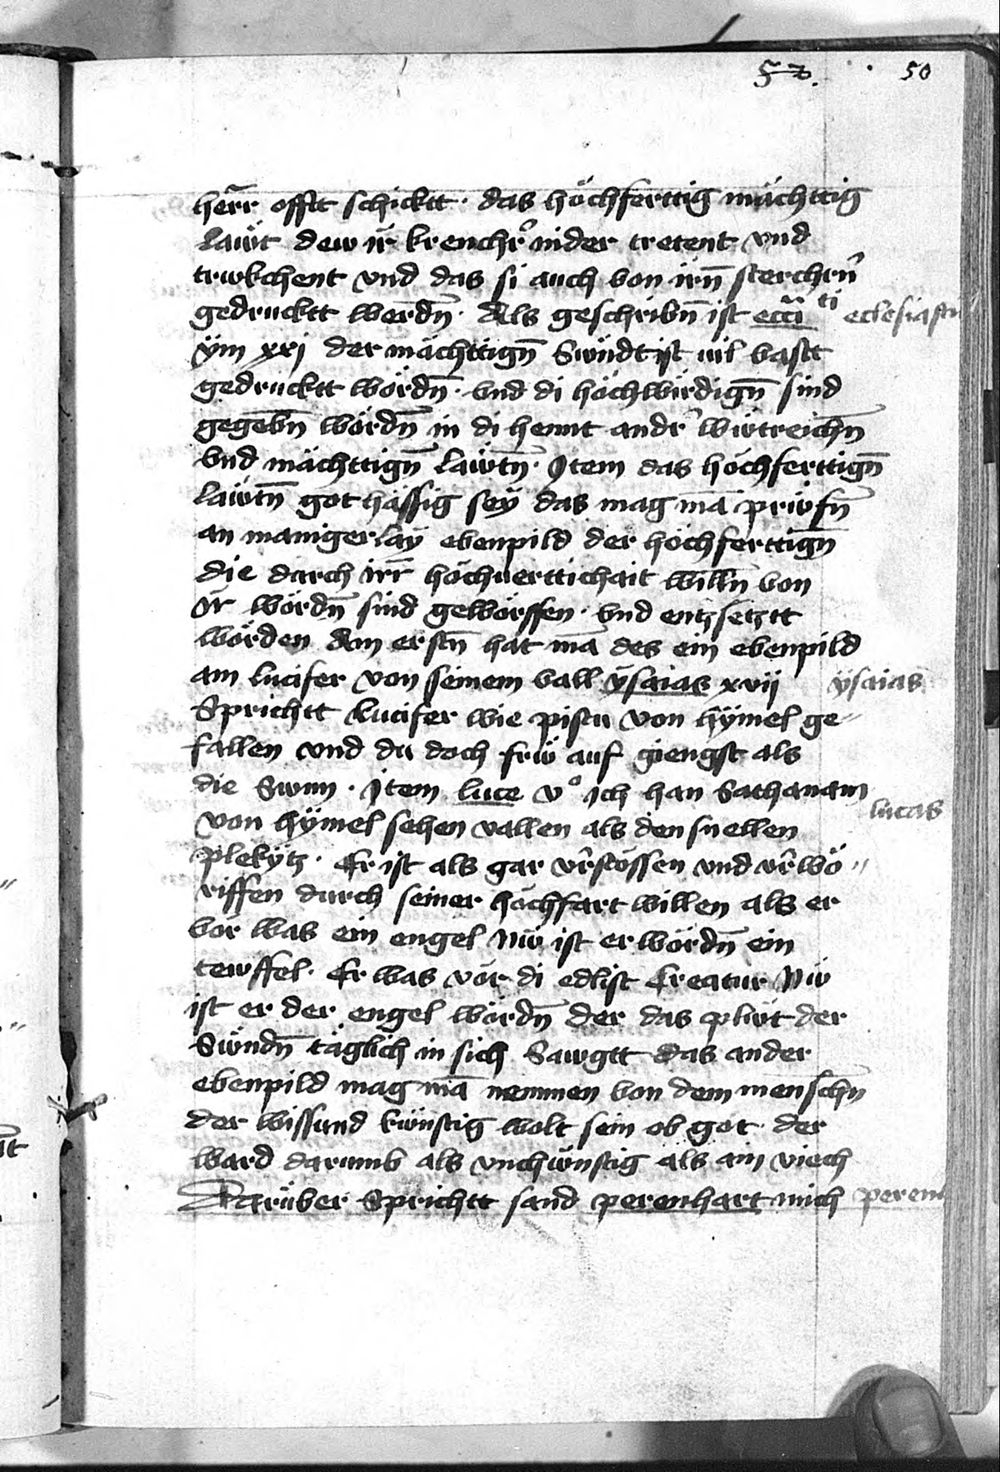 50
herr offtt schicktt · das höchferttig mächttig
läwt dew ir krencher nider tretent vnd
trwkchent vnd das si auch von irn sterchern
gedrucktt werdn̄ · Als geschribn̄ ist ecc̄i ti eclesiasti
ym xxj der mächttign̄ Swindt ist vil vastt
gedrucktt wordn̄ · vnd di höchwirdign̄ sind
gegebn̄ wördn̄ in di hennt andr̄ wütreichn̄
vnd mächttign̄ läwtn̄ · Item das höchferttign̄
läwtn̄ got hässig sey das mag mā prüfn̄
an manigerlay ebenpild der höchferttign̄
die durch irr höchuerttichait willn̄ von
ir wördn̄ sind gewörffen · vnd entzsetztt
wörden Am erstn̄ hat mā des ein ebenpild
am lucifer von seinem vall ysaias xvij ysaias
Sprichtt Lucifer wie pistu von hymel ge„
fallen vnd du doch frw auf giengst als
die Sunn · Item luce vº Ich han Sathanam
lucas
von hymel sehen vallen als den snellen
plekytz · Er ist als gar v̄rstössen vnd v̄rwö„
riffen durch seiner höchfart willen als er
vor was ein engel Nw ist er wördn̄ ein
tewffel · Er was vör di edlist Creatur Nw
ist er der engel wördn̄ der das plüt der
Swndn̄ täglich in sich Sawgtt das ander
ebenpild mag mā nemmen von dem menschn̄
der wissund künftig wolt sein ob got der
ward darumb als vnchünstig als ain viech
Darüber Sprichtt sand perenhart mich peren